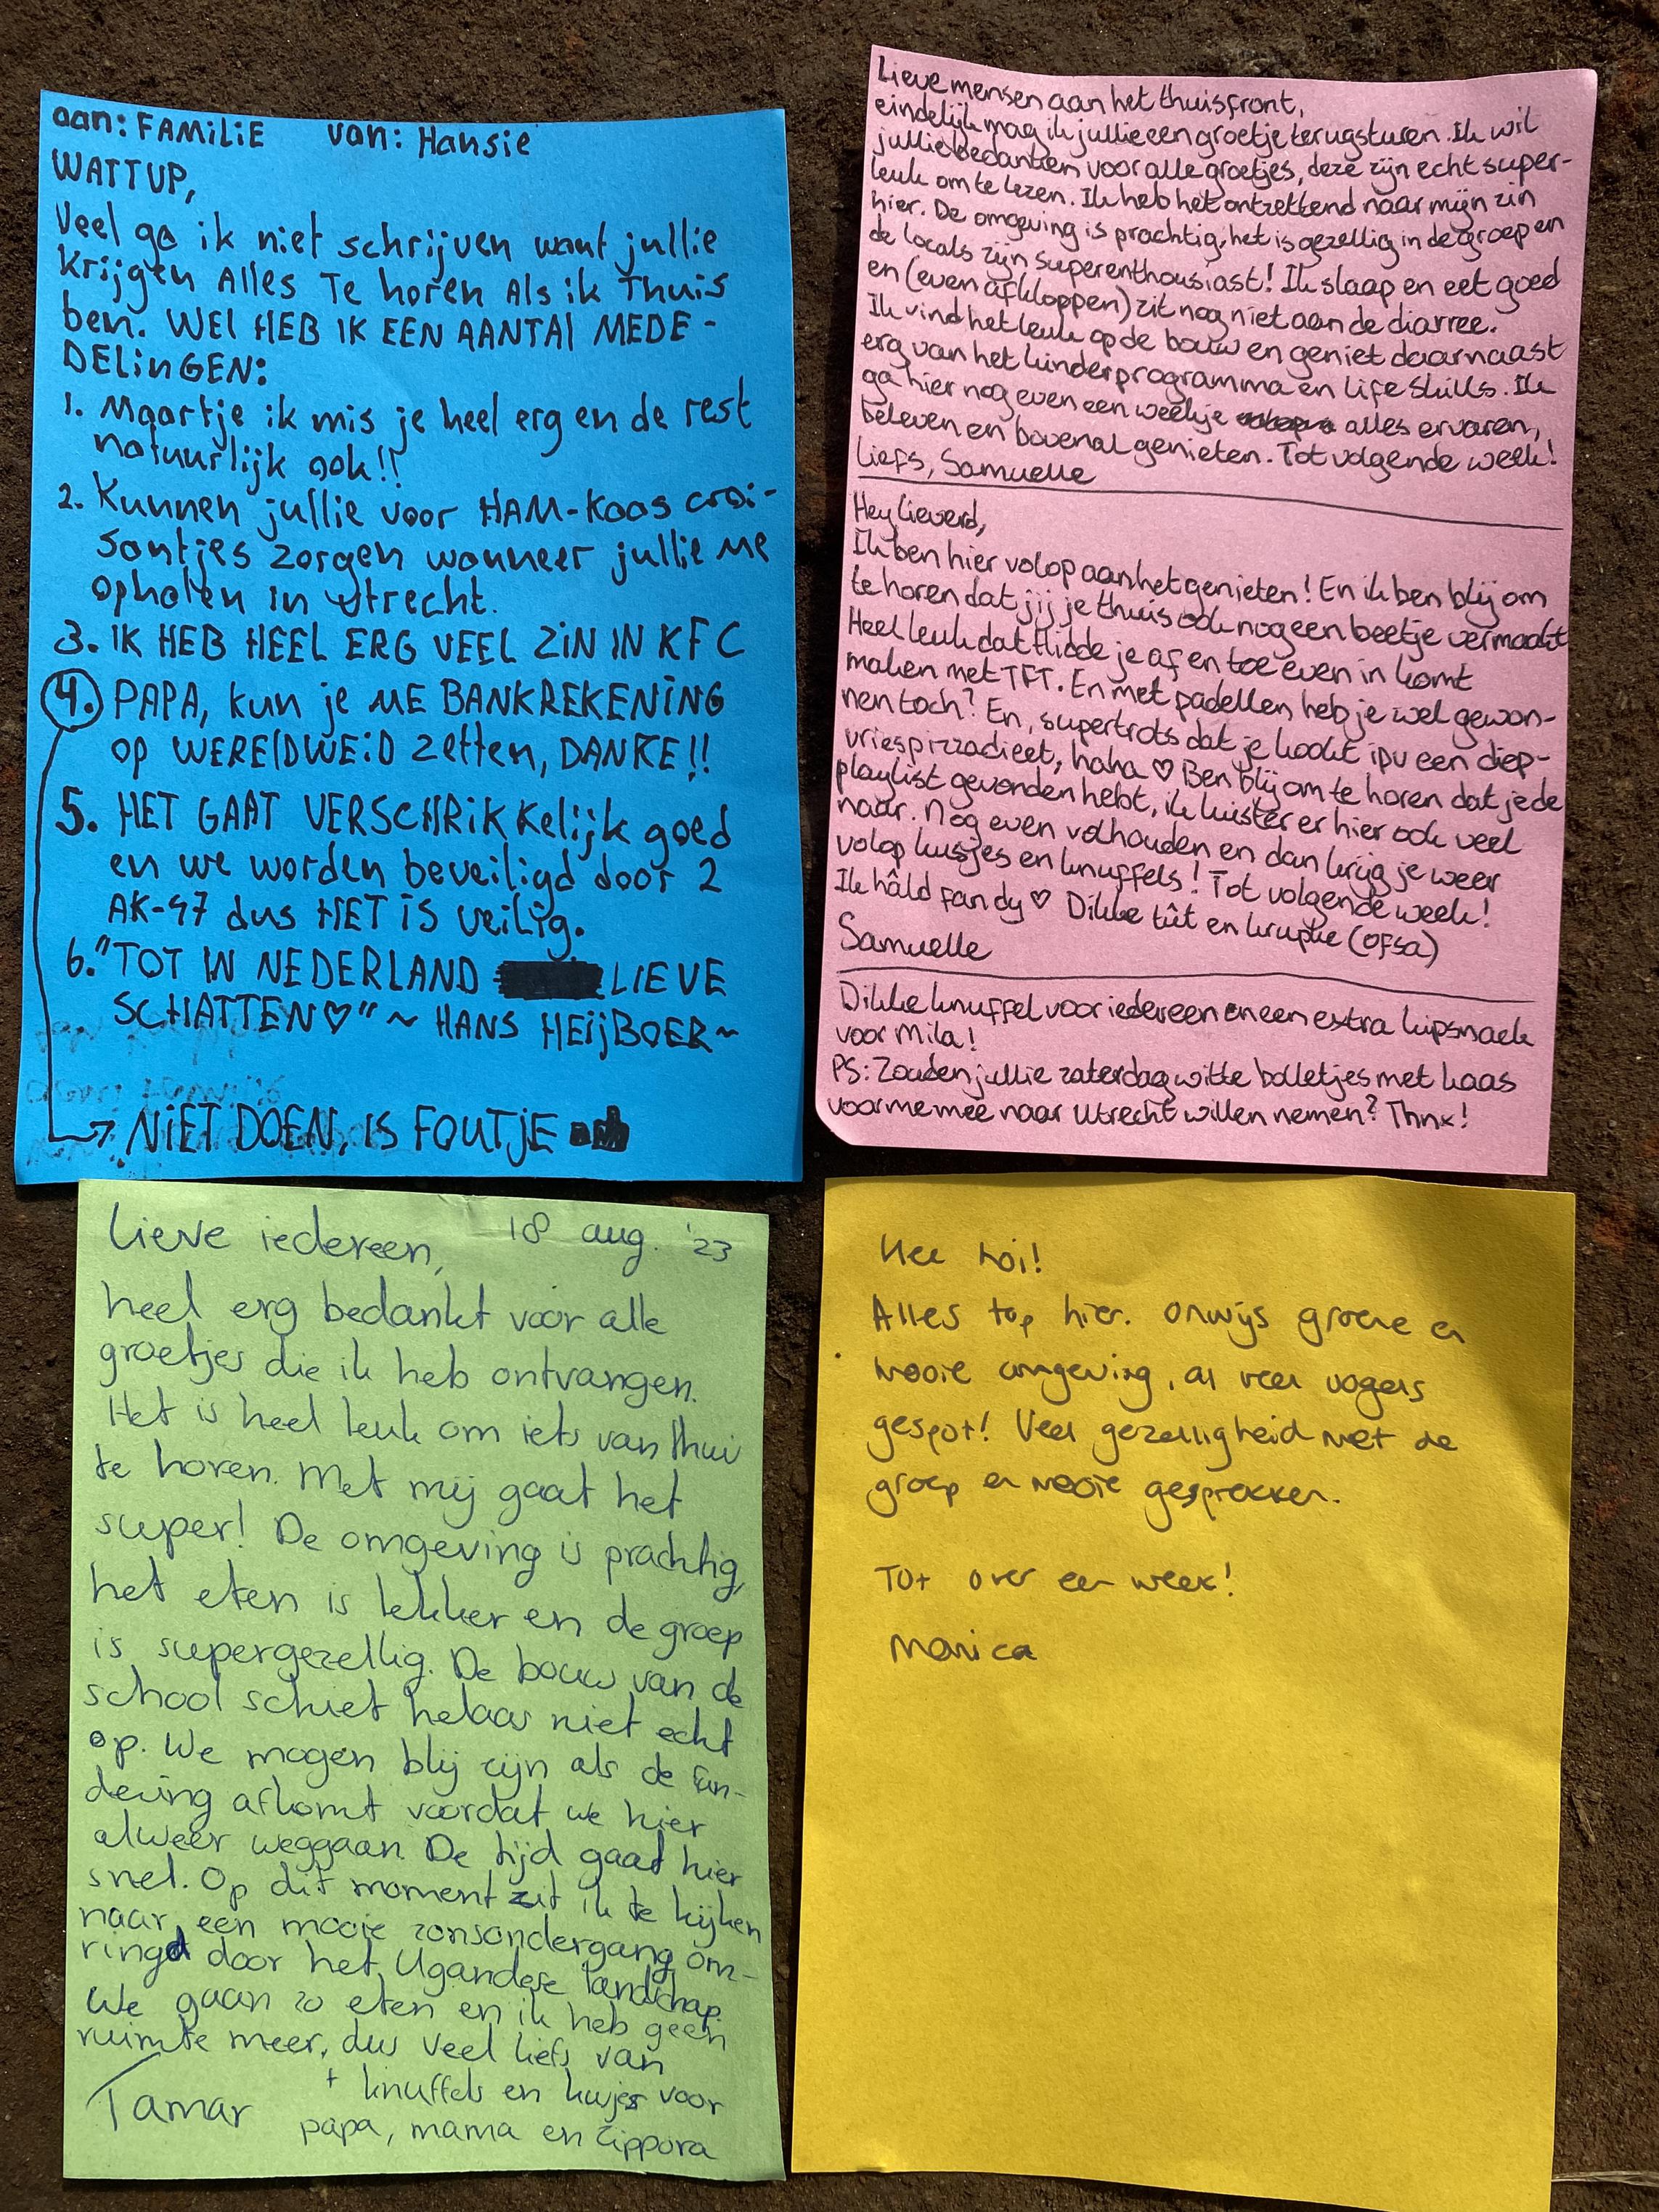 aan: FAMILIE van: Hansie
WATTUP,
Veel ga ik niet schrijven want jullie
krijgen Alles Te horen Als ik Thuis
ben. WEL HEB IK EEN AANTAl MEDE-
DELiNGEN:
1. Maartje ik mis je heel erg en de rest
natuurlijk ook!!
2. Kunnen jullie voor HAM-Kaas croi-
santjes zorgen wanneer jullie me
ophalen in Utrecht.
3. IK HEB HEEL ERG VEEL ZIN IN KFC
4. PAPA, kun je ME BANKREKENING
op WERElDWEiD zetten, DANKE!!
5. HET GAAT VERSCHRiKKelijk goed
en we worden beveiligd door 2
AK-47 dus HET IS veilig.
6. "TOT IN NEDERLAND LIEVE
SCHATTEN♡" ~ HANS HEIJBOER~
NIET DOEN, IS FOUTJE
Lieve mensen aan het thuisfront,
eindelijk mag ik jullie een groetje terugsturen. Ik wil
jullie bedanken voor alle groetjes, deze zijn echt super-
leuk om te lezen. Ik heb het ontzettend naar mijn zin
hier. De omgeving is prachtig, het is gezellig in de groep en
de locals zijn superenthousiast! Ik slaap en eet goed
en (even afkloppen) zit nog niet aan de diarree.
Ik vind het leuk op de bouw en geniet daarnaast
erg van het kinderprogramma en life skills. Ik
ga hier nog even een weekje alles ervaren,
beleven en bovenal genieten. Tot volgende week!
Liefs, Samuelle
Hey lieverd,
Ik ben hier volop aan het genieten! En ik ben blij om
te horen dat jij je thuis ook nog een beetje vermaakt
Heel leuk dat Hidde je af en toe even in komt
maken met TFT. En met padellen heb je wel gewon-
nen toch? En, supertrots dat je kookt ipv een diep-
vriespizzadieet, haha ♡ Ben blij om te horen dat je de
playlist gevonden hebt, ik luister er hier ook veel
naar. Nog even volhouden en dan krijg je weer
volop kusjes en knuffels! Tot volgende week!
Ik hâld fan dy ♡ Dikke tût en krupke (ofsa)
Samuelle
Dikke knuffel voor iedereen en een extra kipsnack
voor Mila!
PS: Zouden jullie zaterdag witte bolletjes met kaas
voor me mee naar Utrecht willen nemen? Thnx!
Lieve iedereen, 18 aug. '23
heel erg bedankt voor alle
groetjes die ik heb ontvangen.
Het is heel leuk om iets van thui
te horen. Met mij gaat het
super! De omgeving is prachtig,
het eten is lekker en de groep
is supergezellig. De bouw van de
school schiet helaas niet echt
op. We mogen blij zijn als de fun-
dering afkomt voordat we hier
alweer weggaan. De tijd gaat hier
snel. Op dit moment zit ik te kijken
naar een mooie zonsondergang om-
ringd door het Ugandese landschap.
We gaan zo eten en ik heb geen
ruimte meer, dus veel liefs van
Tamar + knuffels en kusjes voor
papa, mama en Zippora
Hee hoi!
Alles top hier. Onwijs groene en
mooie omgeving, al veel vogels
gespot! Veel gezelligheid met de
groep en mooie gesprekken.
Tot over een week!
Monica